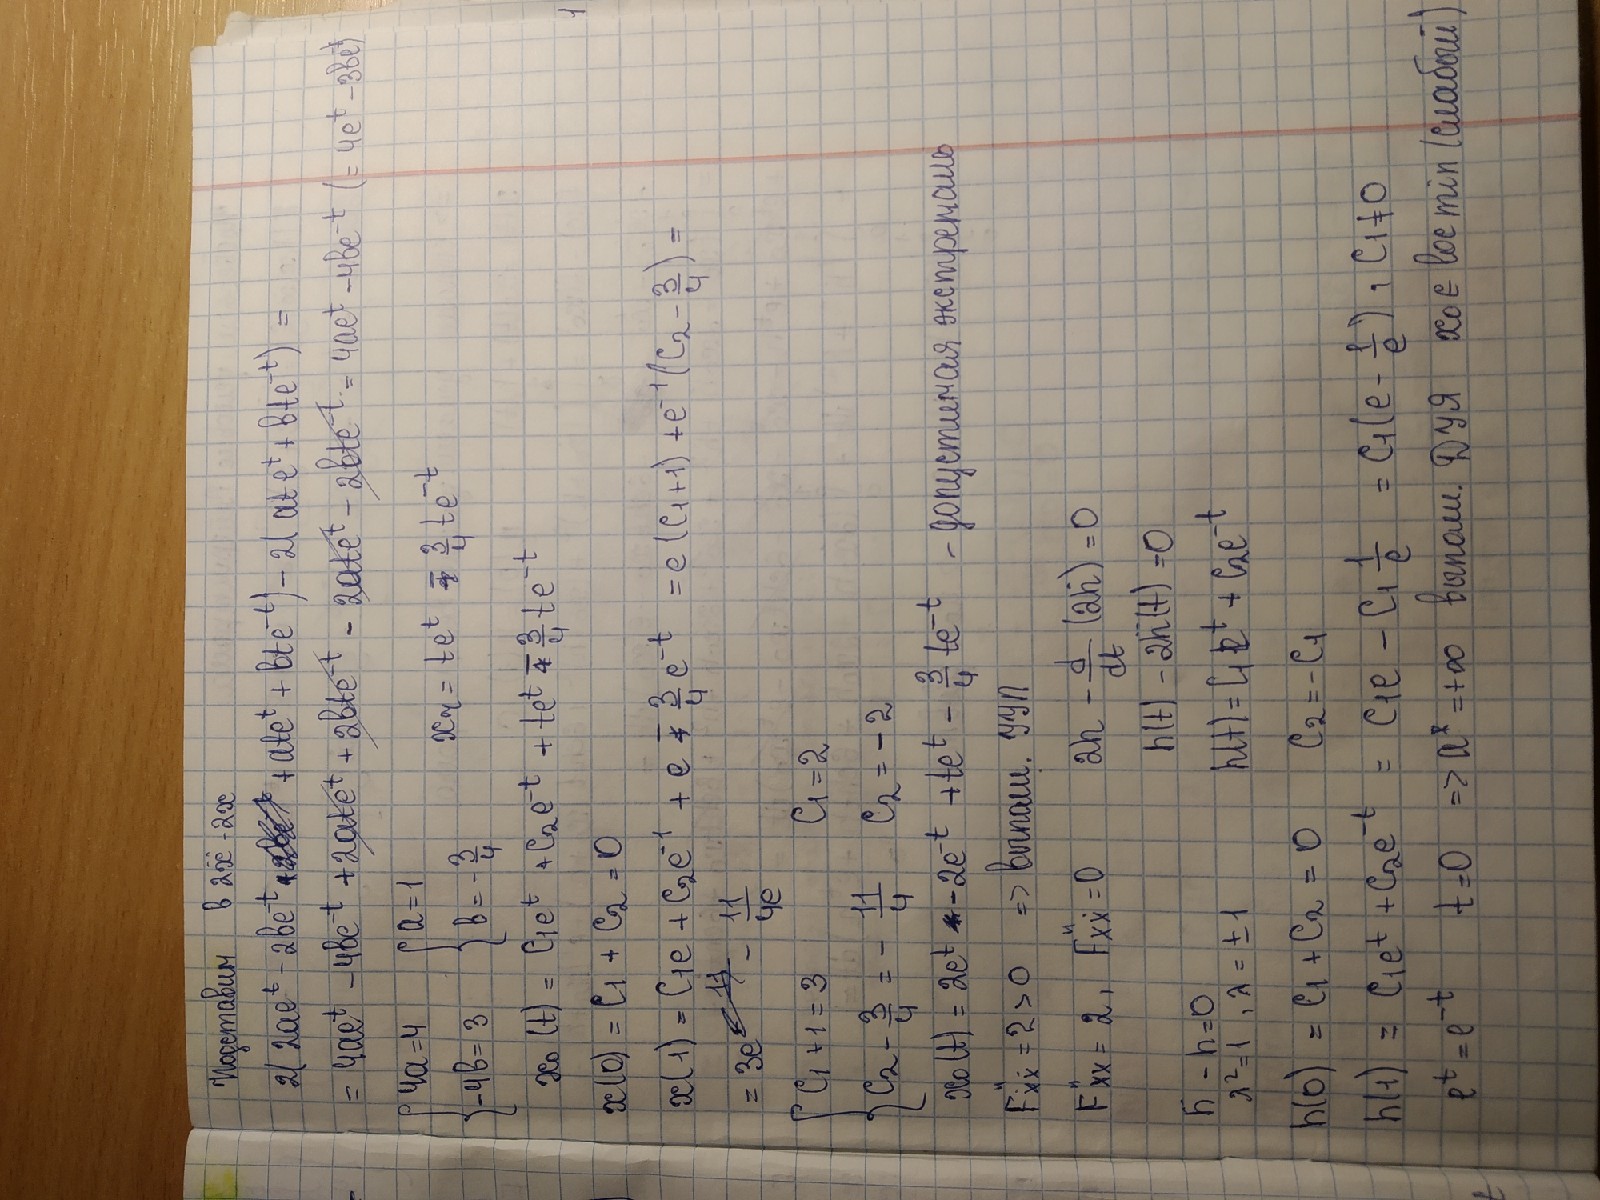 Подставим в 2ẍ - 2x
2(2ae^t - 2be^-t + ate^t + bte^-t) - 2(ate^t + bte^-t) =
= 4ae^t - 4be^-t + 2ate^t + 2bte^-t - 2ate^t - 2bte^-t = 4ae^t - 4be^-t (= 4e^t - 3be^t)
{ 4a = 4 { a = 1
-4b = 3 b = -3/4 xч = te^t - 3/4 te^-t
x₀(t) = C₁e^t + C₂e^-t + te^t - 3/4 te^-t
x(0) = C₁ + C₂ = 0
x(1) = C₁e + C₂e^-1 + e - 3/4 e^-t = e(C₁+1) + e^-1(C₂ - 3/4) =
= 3e - 11/4e
{ C₁ + 1 = 3 C₁ = 2
C₂ - 3/4 = - 11/4 C₂ = -2
x₀(t) = 2e^t - 2e^-t + te^t - 3/4 te^-t - допустимая экстремаль
F''ẋẋ = 2 > 0 => выполн. УУЛ
F''xx = 2, F''xẋ = 0 2h - d/dt (2ḣ) = 0
h(t) - 2ḧ(t) = 0
ḧ - h = 0
λ² = 1, λ = ±1 h(t) = C₁e^t + C₂e^-t
h(0) = C₁ + C₂ = 0 C₂ = -C₁
h(1) = C₁e^t + C₂e^-t = C₁e - C₁ 1/e = C₁(e - 1/e), C₁ ≠ 0
e^t = e^-t t = 0 => a* = +∞ выполн. ДУЯ x₀ ∈ loc min (слабый)